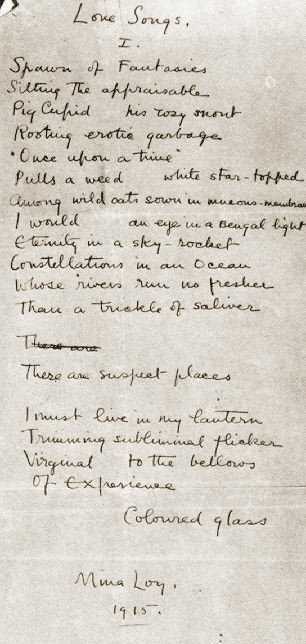 Love Songs.
I.
Spawn of Fantasies
Sitting The appraisable
Pig Cupid his rosy snout
Rooting erotic garbage
"Once upon a time"
Pulls a weed white star-topped
Among wild oats sown in mucous-membrane
I would an eye in a Bengal light
Eternity in a sky-rocket
Constellations in an Ocean
Whose rivers run no fresher
Than a trickle of saliver
There are
There are suspect places
I must live in my lantern
Trimming subliminal flicker
Virginal to the bellows
Of Experience
Coloured glass
Mina Loy.
1915.